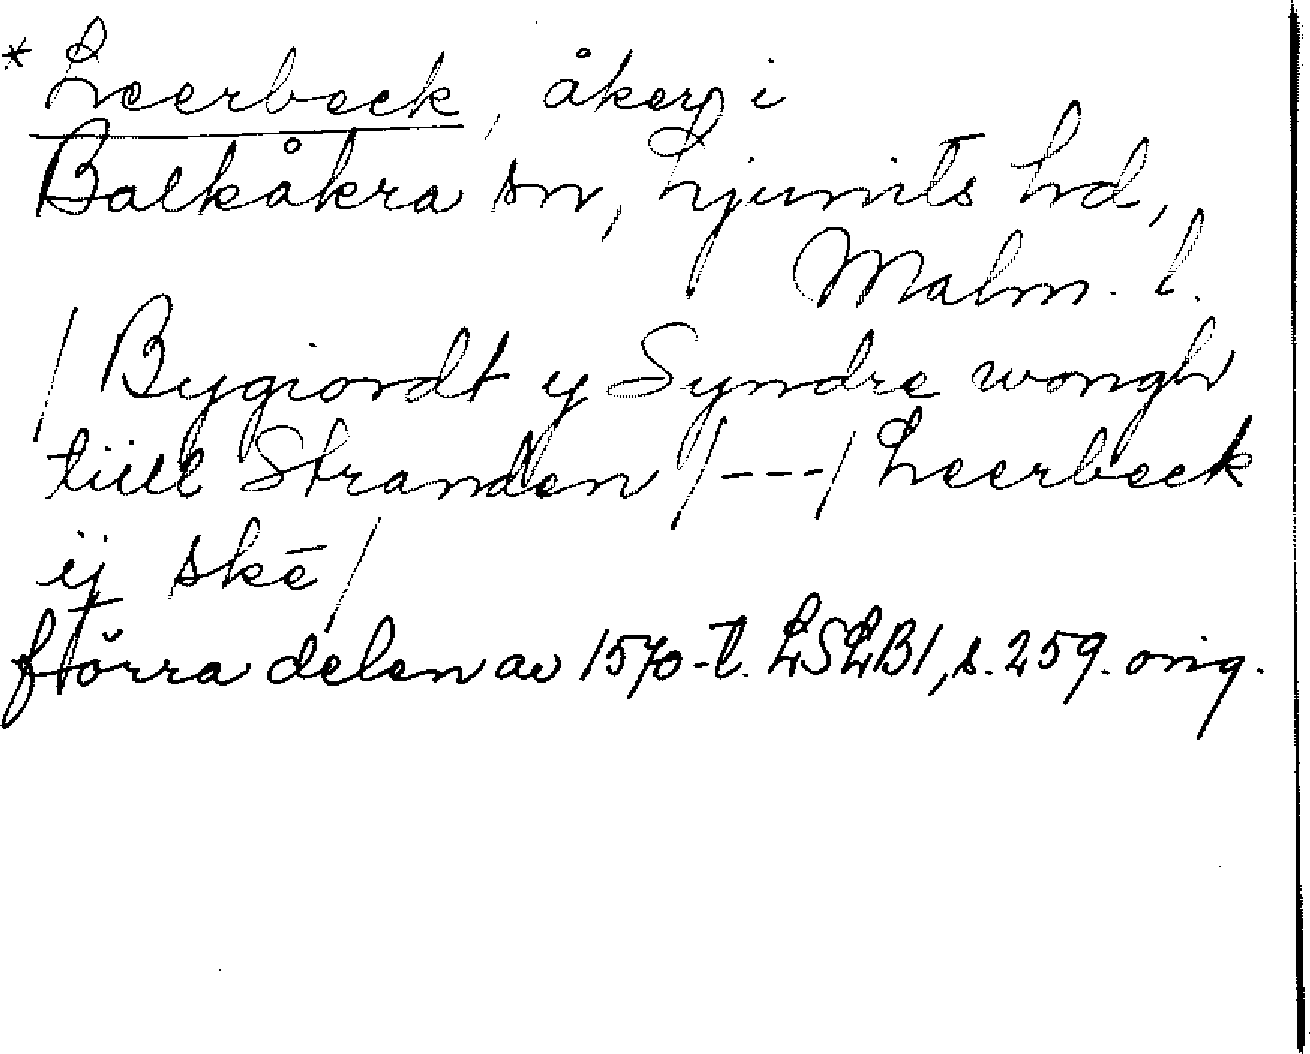 * Leerbeck, åker i
Balkåkra sn, Ljunits hd,
Malm. l.
/ Bygiordt y Syndre wongh
tüll Stranden /---/ Leerbeck
ÿ skē /
förra delen av 1570-t. LSLB1, s. 259. orig.